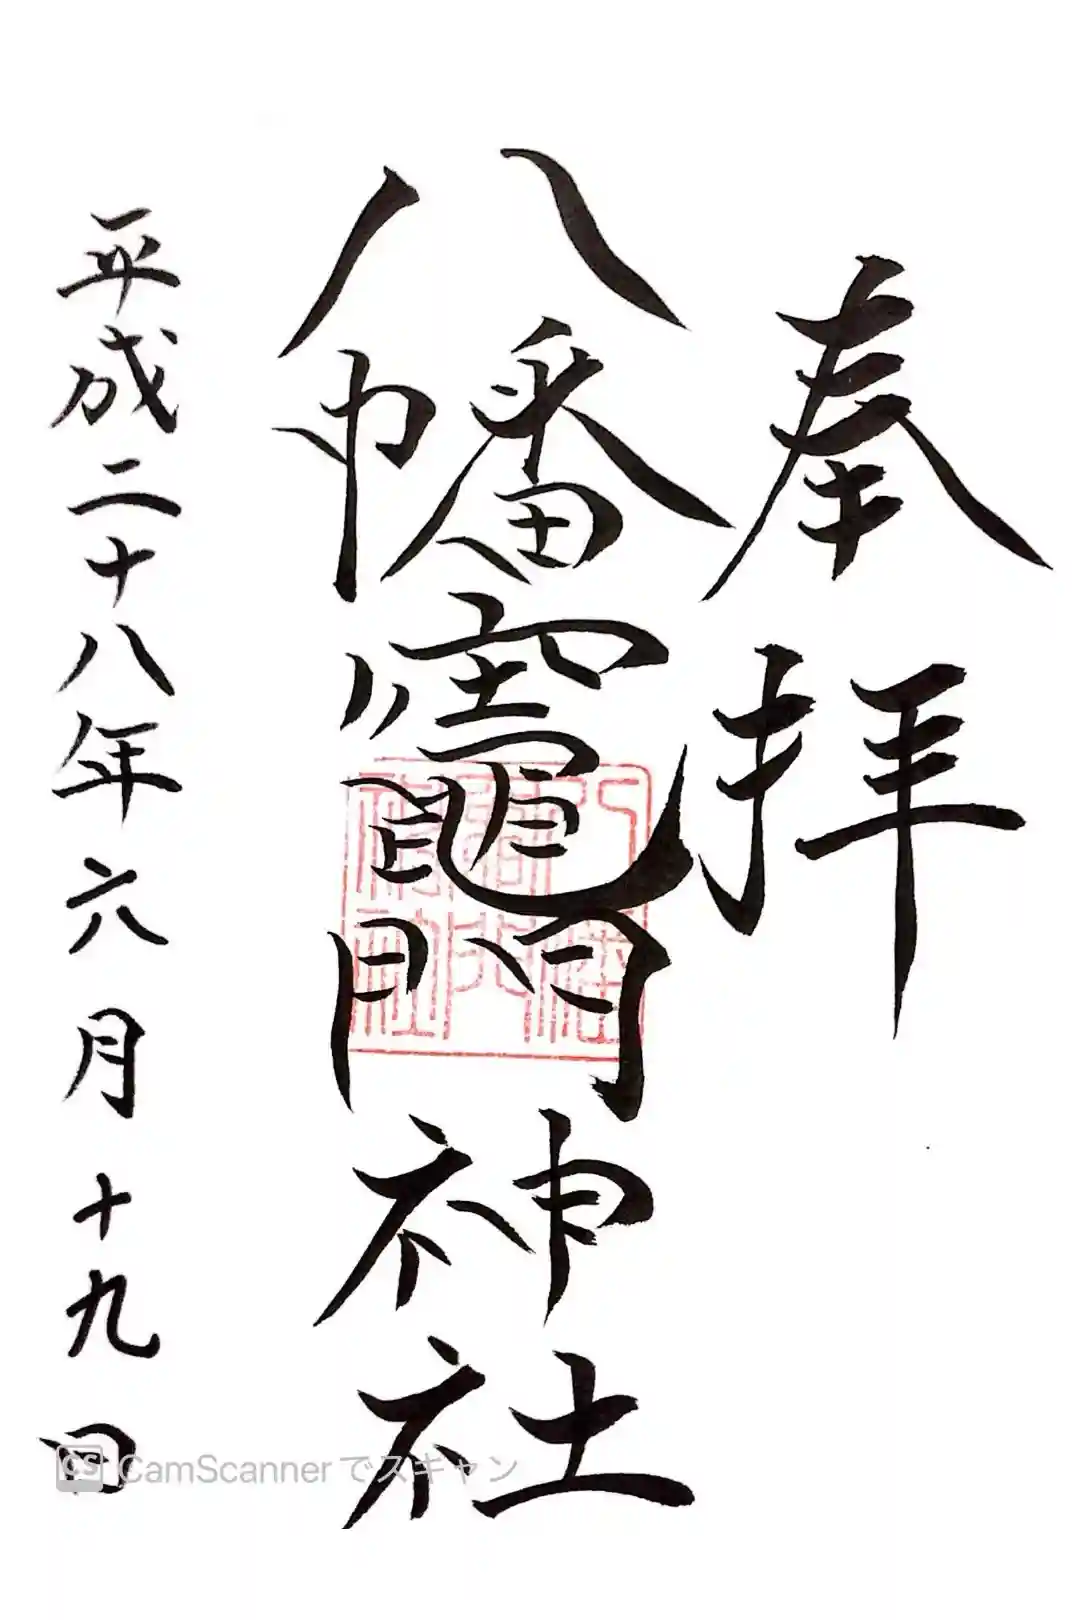 奉拝
八幡竈門神社
平成二十八年六月十九日
CS CamScannerでスキャン